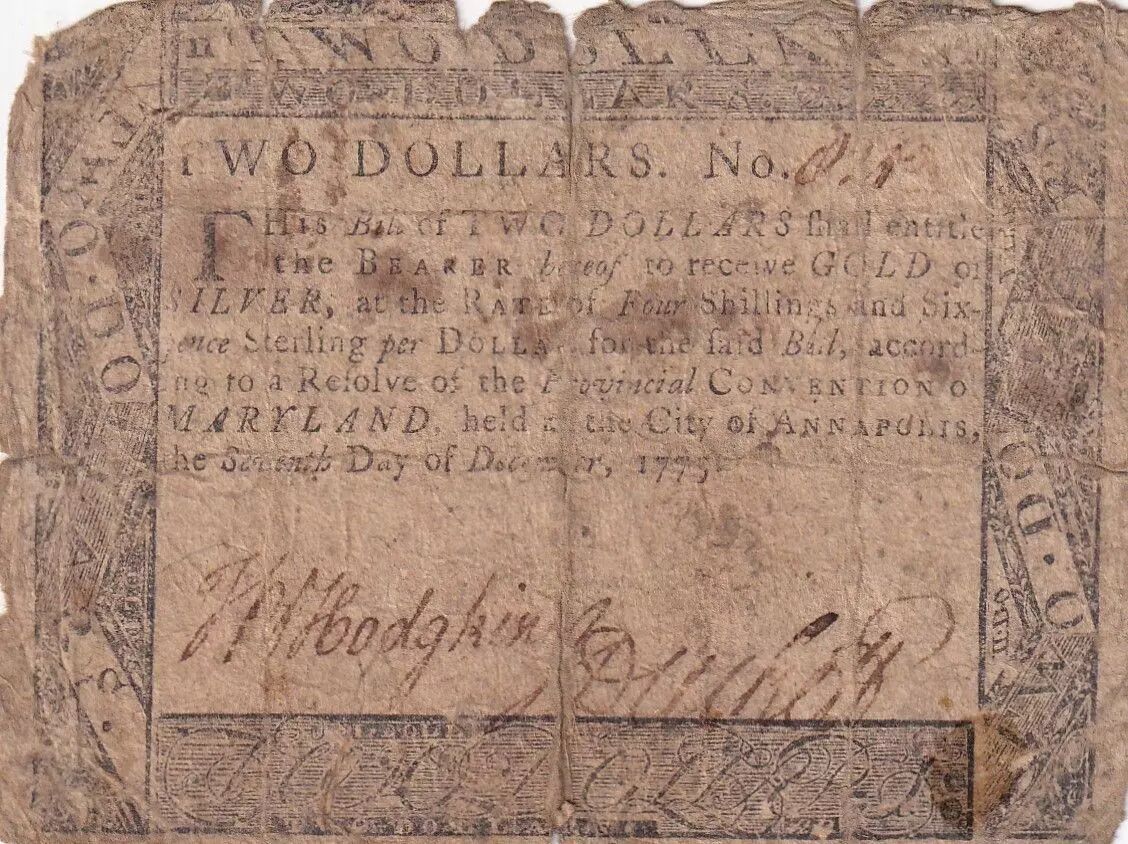 TWO DOLLAR
TWO DOLLARS
TWO DOLLARS. No.
THIS Bill of TWO DOLLARS ſhall entitle
the BEARER hereof to receive GOLD or
SILVER, at the RATE of Four Shillings and Six-
pence Sterling per DOLLAR for the ſaid Bill, accord-
ing to a Reſolve of the Provincial CONVENTION of
MARYLAND, held at the City of ANNAPOLIS,
the Seventh Day of December, 1775.
Hodgkin